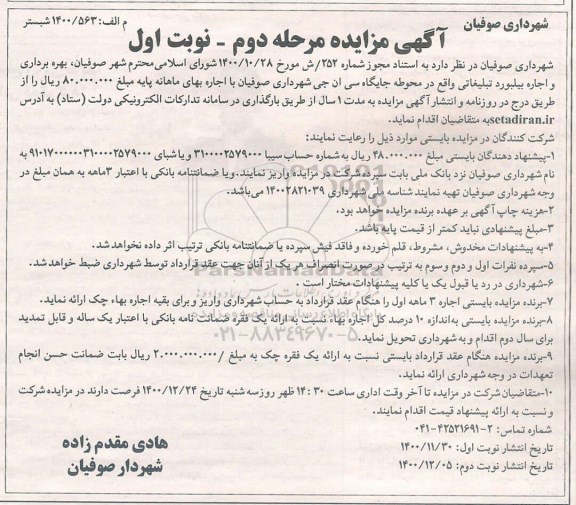 شهرداری صوفیان
م الف: ۱۴۰۰/۵۶۳ شبستر
آگهی مزایده مرحله دوم - نوبت اول
شهرداری صوفیان در نظر دارد به استناد مجوز شماره ۲۵۲/ش مورخ ۱۴۰۰/۱۰/۲۸ شورای اسلامی محترم شهر صوفیان، بهره برداری
و اجاره بیلبورد تبلیغاتی واقع در محوطه جایگاه سی ان جی شهرداری صوفیان با اجاره بهای ماهانه پایه مبلغ ۸۰.۰۰۰.۰۰۰ ریال را از
طریق درج در روزنامه و انتشار آگهی مزایده به مدت ۱ سال از طریق بارگذاری در سامانه تدارکات الکترونیکی دولت (ستاد) به آدرس
setadiran.ir به متقاضیان اقدام نماید.
شرکت کنندگان در مزایده بایستی موارد ذیل را رعایت نمایند:
۱-پیشنهاد دهندگان بایستی مبلغ ۴۸.۰۰۰.۰۰۰ ریال به شماره حساب سیبا ۳۱۰۰۰۰۲۵۷۹۰۰۰ و یا شبای ۹۱۰۱۷۰۰۰۰۰۰۳۱۰۰۰۰۲۵۷۹۰۰۰ به
نام شهرداری صوفیان نزد بانک ملی بابت سپرده شرکت در مزایده واریز نمایند. و یا ضمانتنامه بانکی با اعتبار ۳ماهه به همان مبلغ در
وجه شهرداری صوفیان تهیه نمایند شناسه ملی شهرداری ۱۴۰۰۲۸۲۱۰۳۹ می‌باشد.
۲-هزینه چاپ آگهی بر عهده برنده مزایده خواهد بود.
۳-مبلغ پیشنهادی نباید کمتر از قیمت پایه باشد.
۴-به پیشنهادات مخدوش، مشروط، قلم خورده و فاقد فیش سپرده یا ضمانتنامه بانکی ترتیب اثر داده نخواهد شد.
۵-سپرده نفرات اول و دوم و سوم به ترتیب در صورت انصراف هر یک از آنان جهت عقد قرارداد توسط شهرداری ضبط خواهد شد.
۶-شهرداری در رد یا قبول یک یا کلیه پیشنهادات مختار است .
۷-برنده مزایده بایستی اجاره ۳ ماهه اول را هنگام عقد قرارداد به حساب شهرداری واریز و برای بقیه اجاره بهاء چک ارائه نماید.
۸-برنده مزایده بایستی به‌اندازه ۱۰ درصد کل اجاره بهاء نسبت به ارائه یک فقره ضمانت نامه بانکی با اعتبار یک ساله و قابل تمدید
برای سال دوم اقدام و به شهرداری تحویل نماید.
۹-برنده مزایده هنگام عقد قرارداد بایستی نسبت به ارائه یک فقره چک به مبلغ /۲.۰۰۰.۰۰۰.۰۰۰ ریال بابت ضمانت حسن انجام
تعهدات در وجه شهرداری ارائه نماید.
۱۰-متقاضیان شرکت در مزایده تا آخر وقت اداری ساعت ۱۴:۳۰ ظهر روز سه شنبه تاریخ ۱۴۰۰/۱۲/۲۴ فرصت دارند در مزایده شرکت
و نسبت به ارائه پیشنهاد قیمت اقدام نمایند.
شماره تماس: ۲-۴۲۵۲۱۶۹۱-۰۴۱
تاریخ انتشار نوبت اول: ۱۴۰۰/۱۱/۳۰
تاریخ انتشار نوبت دوم: ۱۴۰۰/۱۲/۰۵
هادی مقدم زاده
شهردار صوفیان
ParsNamadData
۰۲۱-۸۸۳۴۹۶۷۰-۵